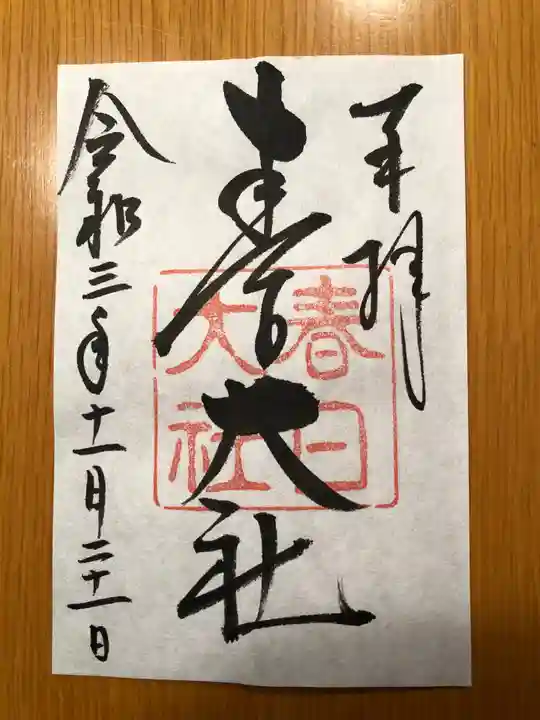 奉拝
春日大社
春日大社
令和三年十一月二十一日